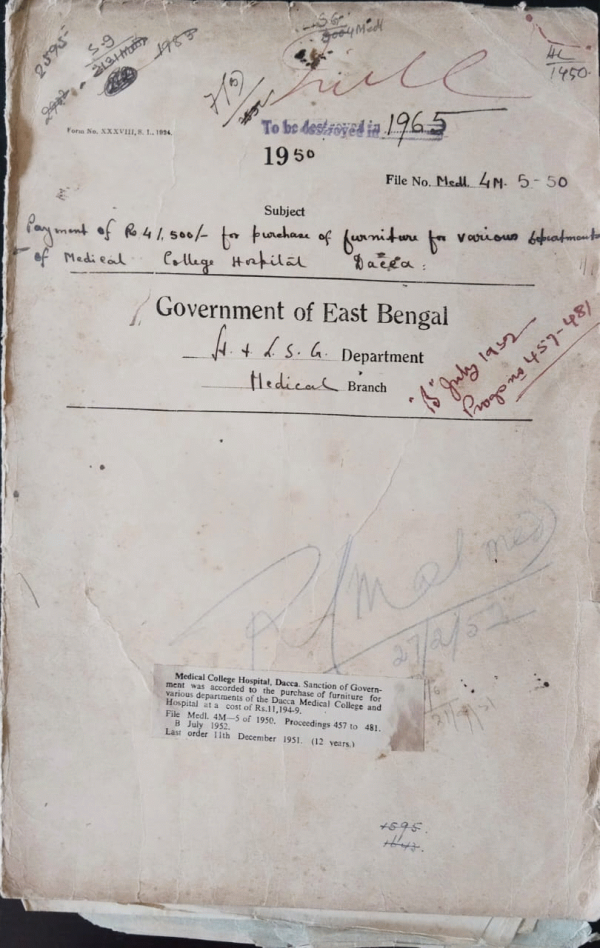 2595
S.9
1983
4L
1450
Form No. XXXVIII, S. I., 1924.
To be destroyed in 1965
1950
File No. Medl. 4M. 5-50
Subject
Payment of Rs 41,500/- for purchase of furniture for various departments
of Medical College Hospital Dacca.
Government of East Bengal
H. & L. S. G. Department
Medical Branch
"B" July 1952
Progs no 457-481
27/2/52
Medical College Hospital, Dacca. Sanction of Govern-
ment was accorded to the purchase of furniture for
various departments of the Dacca Medical College and
Hospital at a cost of Rs.11,194-9.
File Medl. 4M—5 of 1950. Proceedings 457 to 481.
B July 1952.
Last order 11th December 1951. (12 years.)
1595.